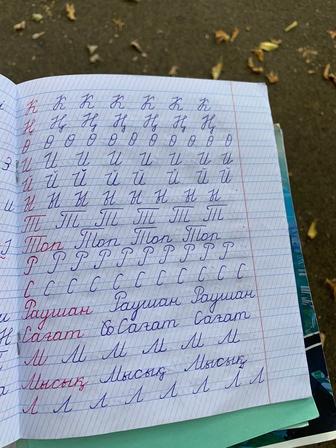 К К К К К К К
Ң Ң Ң Ң Ң Ң Ң
Ө Ө Ө Ө Ө Ө Ө Ө Ө
И И И И И И И И
Й Й Й Й Й Й Й
Н Н Н Н Н Н Н Н
Т Т Т Т Т Т
Топ Топ Топ Топ
Р Р Р Р Р Р Р Р Р
С С С С С С С С С С
Раушан Раушан Раушан
Сағат Сағат Сағат
М М М М М М
Мысық Мысық Мысық
Л Л Л Л Л Л Л Л